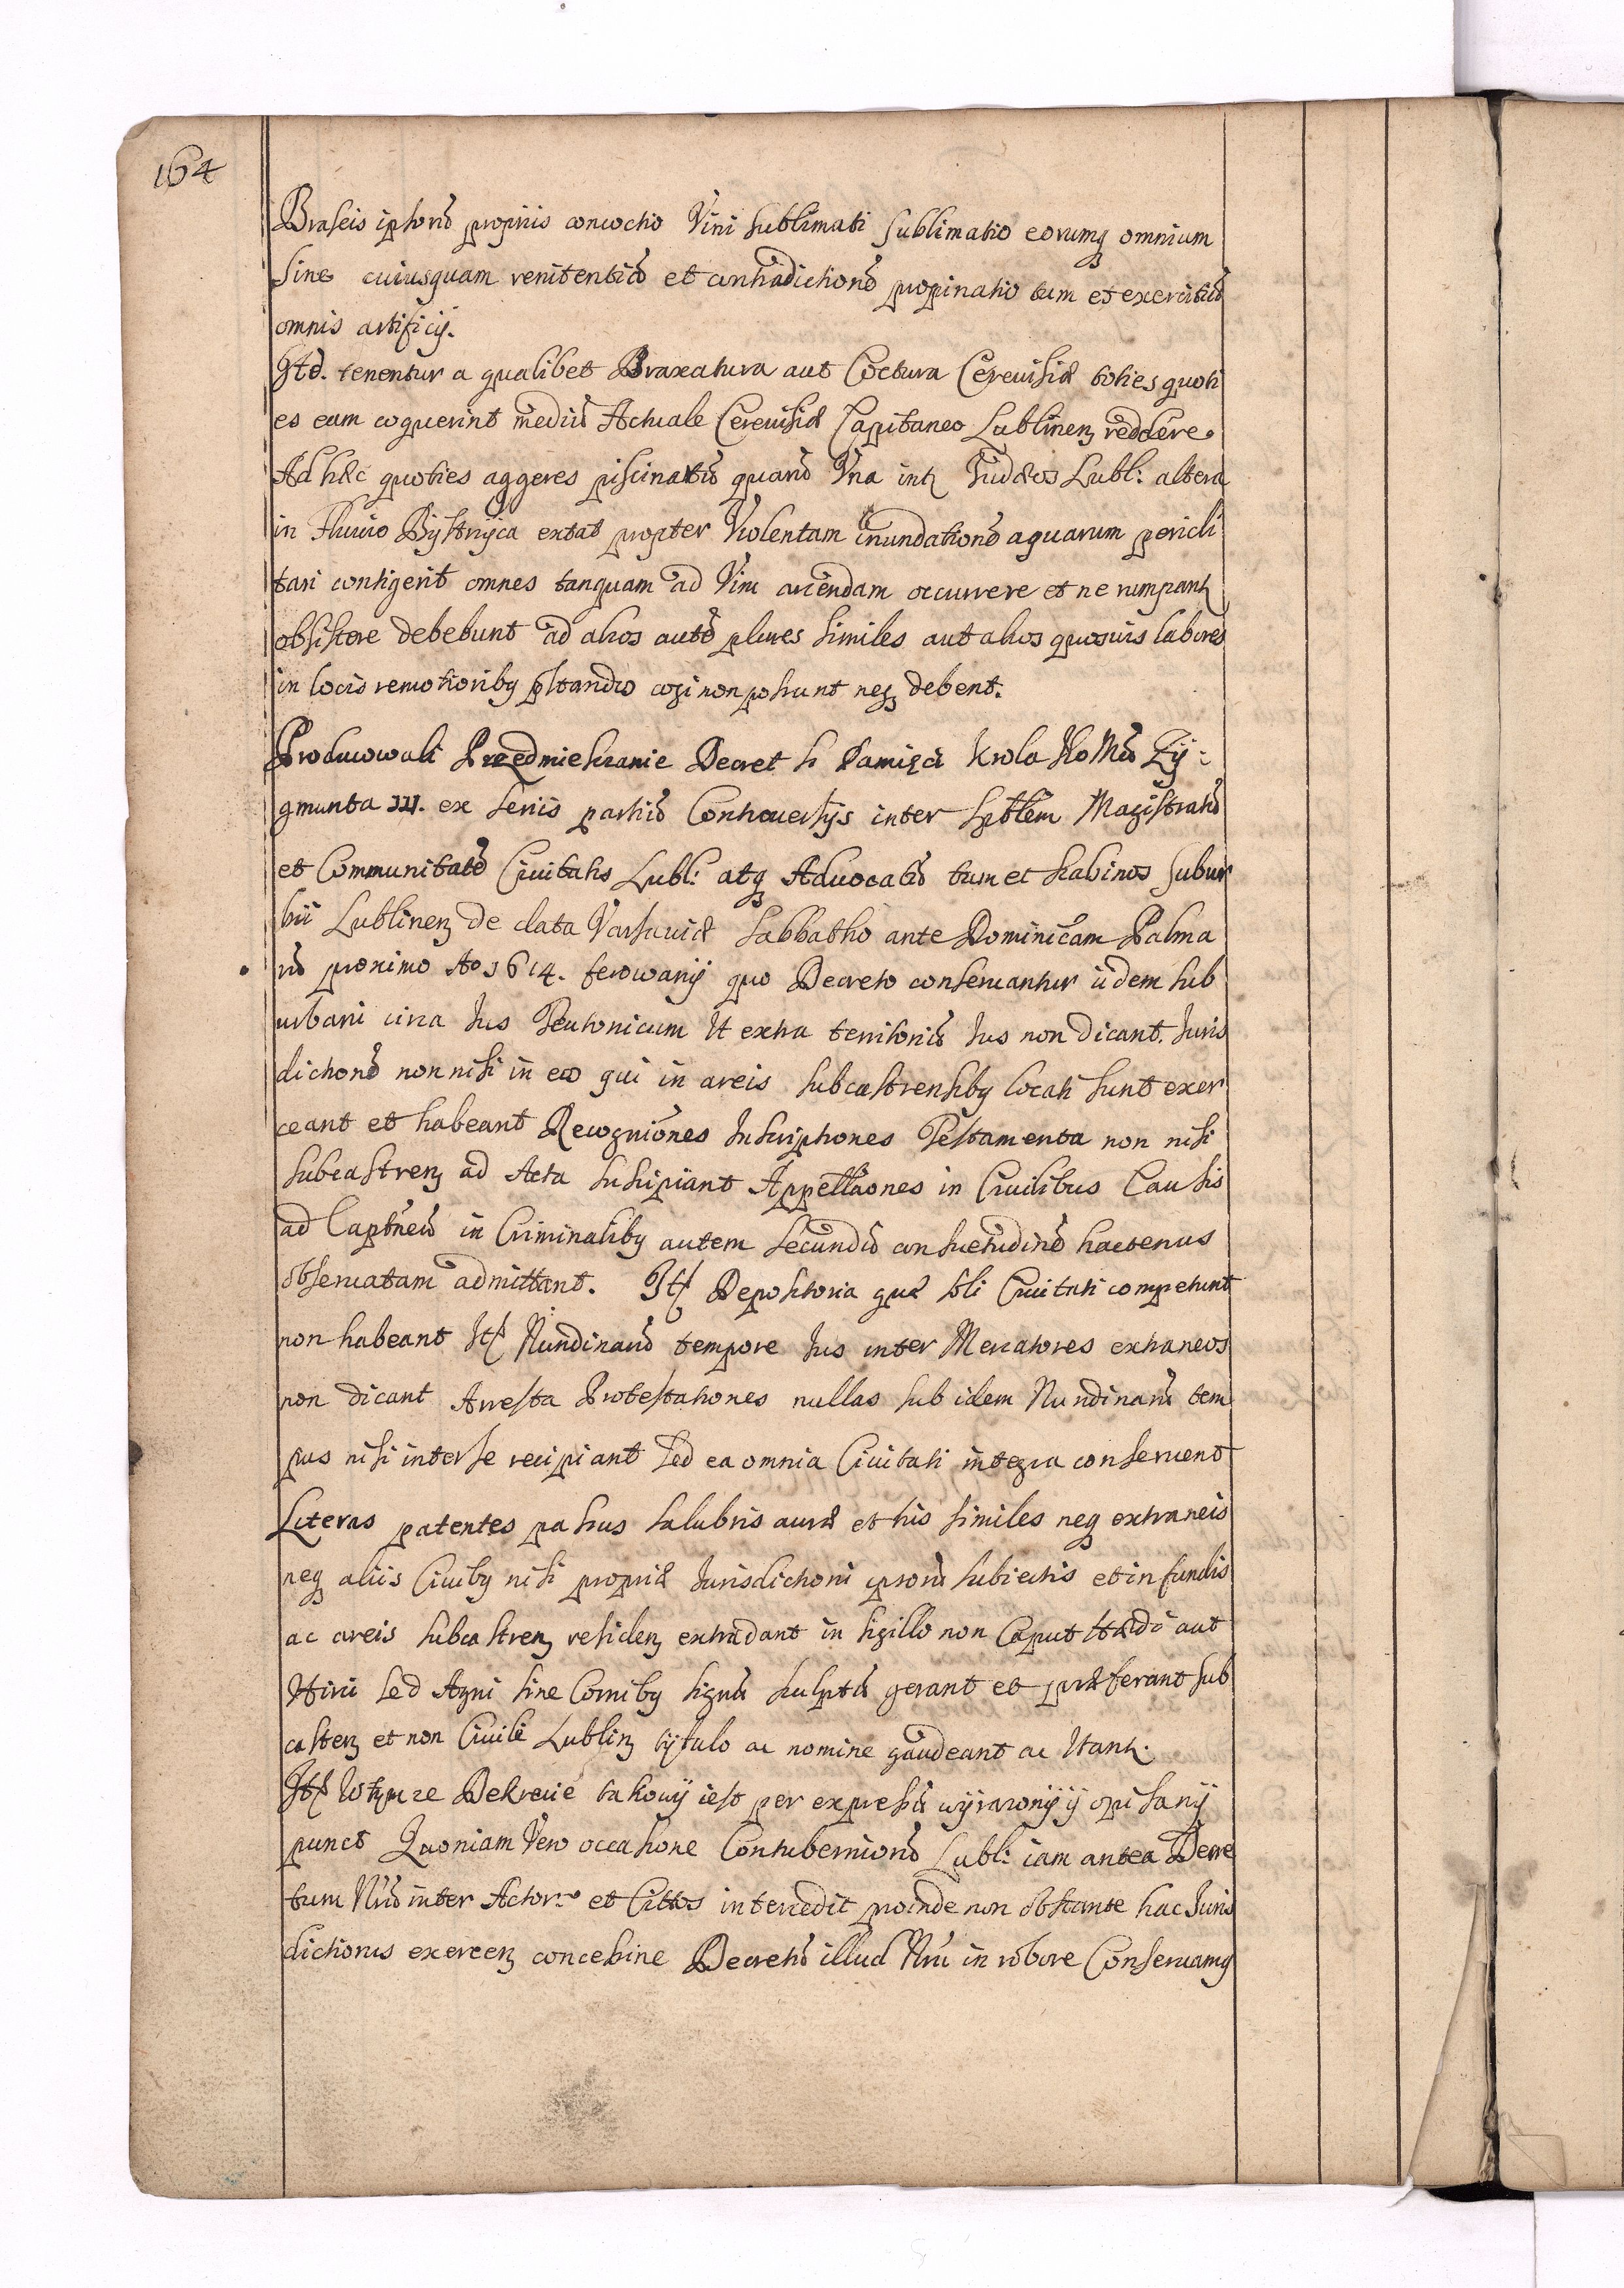 164
Braseis ipsorū propriis concoctio Vini sublimati sublimatio eorumq omnium
sine cuiusquam renitentiā et contradictionē propinatio tum et exercitiū
omnis artificij.
Itē. tenentur a qualibet Braxatura aut Coctura Cereuisiæ toties quoti
es eam coquerint mediū Actuale Cereuisiæ Capitaneo Lublinen reddere.
Ad hæc quoties aggeres piscinarū quarū Vna int Iudæos Lubl: altera
in Fluuio Bystrzyca extat propter Violentam inundationē aquarum pericli
tari contigerit omnes tanquam ad Vim arcendam occurrere et ne rumpant
obsistere debebunt ad alios autē plures similes aut alios quosuis labores
in locis remotioribq pstandos cogi non possunt neq debent.
Producowali Przedmieszczanie Decret S Pamięci Krola Jo Mci Zy:
gmunta III. ex seriis partiū Controuersijs inter Spblem Magistratū
et Communitatē Ciuitatis Lubl: atq Aduocatū tum et Scabinos Subur
bii Lublinen de data Varsauiæ Sabbatho ante Dominicam Palma
rū proximo Ao 1614. ferowany quo Decreto conseruantur iidem sub
urbani circa Ius Teutonicum Vt extra territoriū Ius non dicant. Iuris
dictionē non nisi in eos qui in areis subcastrensibq locati sunt exer
ceant et habeant Recogniones Inscriptiones Testamenta non nisi
subcastren ad Acta suscipiant Appellaones in Ciuilibus Causis
ad Captneū in Criminalibq autem secundū consuetudinē hactenus
obseruatam admittant. It Depositoria quæ soli Ciuitati competunt
non habeant It Nundinarū tempore Ius inter Mercatores extraneos
non dicant Arresta Protestationes nullas sub idem Nundinarū tem
pus nisi inter se recipiant sed ea omnia Ciuitati integra conseruent
Literas patentes passus salubris auræ et his similes neq extraneis
neq aliis Ciuibq nisi propriæ Iurisdictioni ipsorū subiectis et in fundis
ac areis subcastren residen extradant in sigillo non Caput Hædi aut
Hirci sed Agni sine Cornibq signū sculptū gerant et præferant sub
castren et non Ciuili Lublin tytulo ac nomine gaudeant ac Vtant.
It w tymze Dekrecie takowy iest per expressū wyrazony y opisany
punct Quoniam Vero occasione Contuberniorū Lubl: iam antea Decre
tum Nrū inter Actor. et Cittos intercedit proinde non obstante hac Iuris
dictionis exercen concessine Decretū illud Nrū in robore Conseruamq